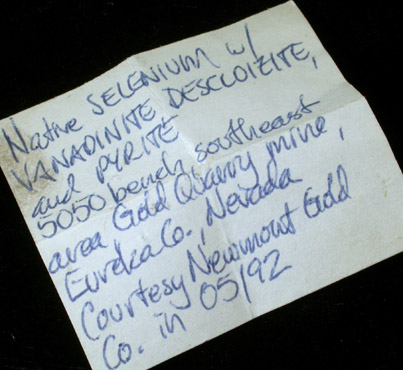 Native SELENIUM w/
VANADINITE DESCLOIZITE,
and PYRITE
5050 bench southeast
area Gold Quarry mine,
Eureka Co., Nevada
Courtesy Newmont Gold
Co. in 05/92